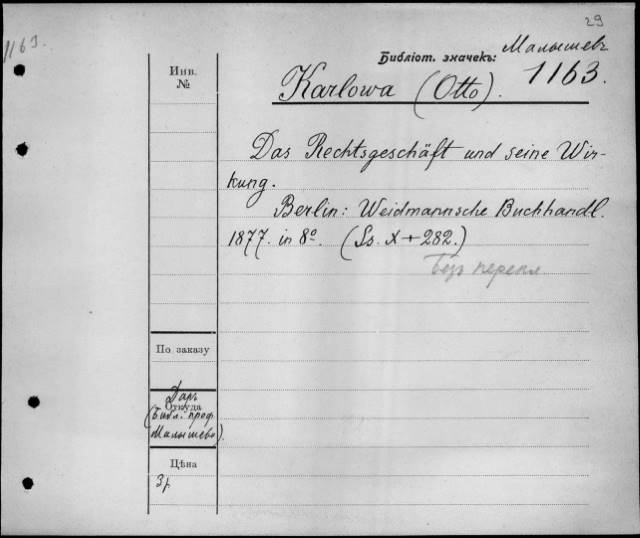 29
1163.
Малышевъ
Библіот. значекъ: 1163.
Инв.
№
Karlowa (Otto).
Das Rechtsgeschäft und seine Wir-
kung.
Berlin: Weidmannsche Buchhandl.
1877. in 8º. (Ss. X + 282.)
Безъ перепл
По заказу
Даръ
Откуда
(Библ. проф.
Малышева).
Цѣна
3р